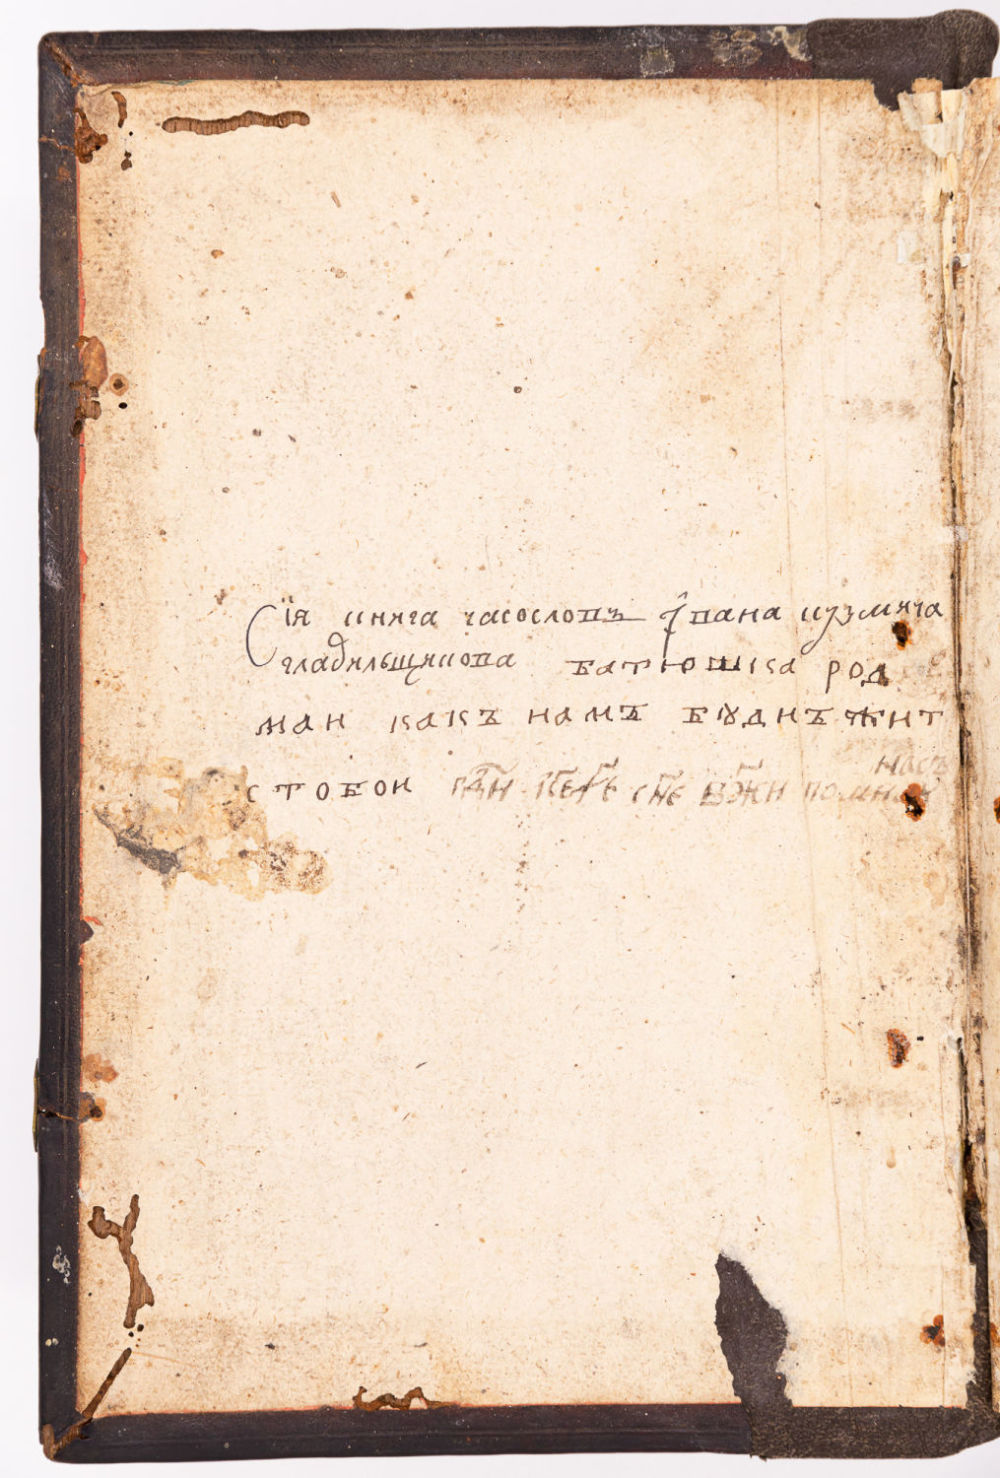 Сїя книга часословъ Івана кузмича
гладильщикова батюшка род
ман какъ намъ бꙋднъ жит
стобои гд҃и іс҃е хр҃е сн҃е бж҃и помилꙋи
насъ